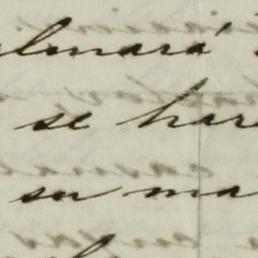 almará
se har
su ma